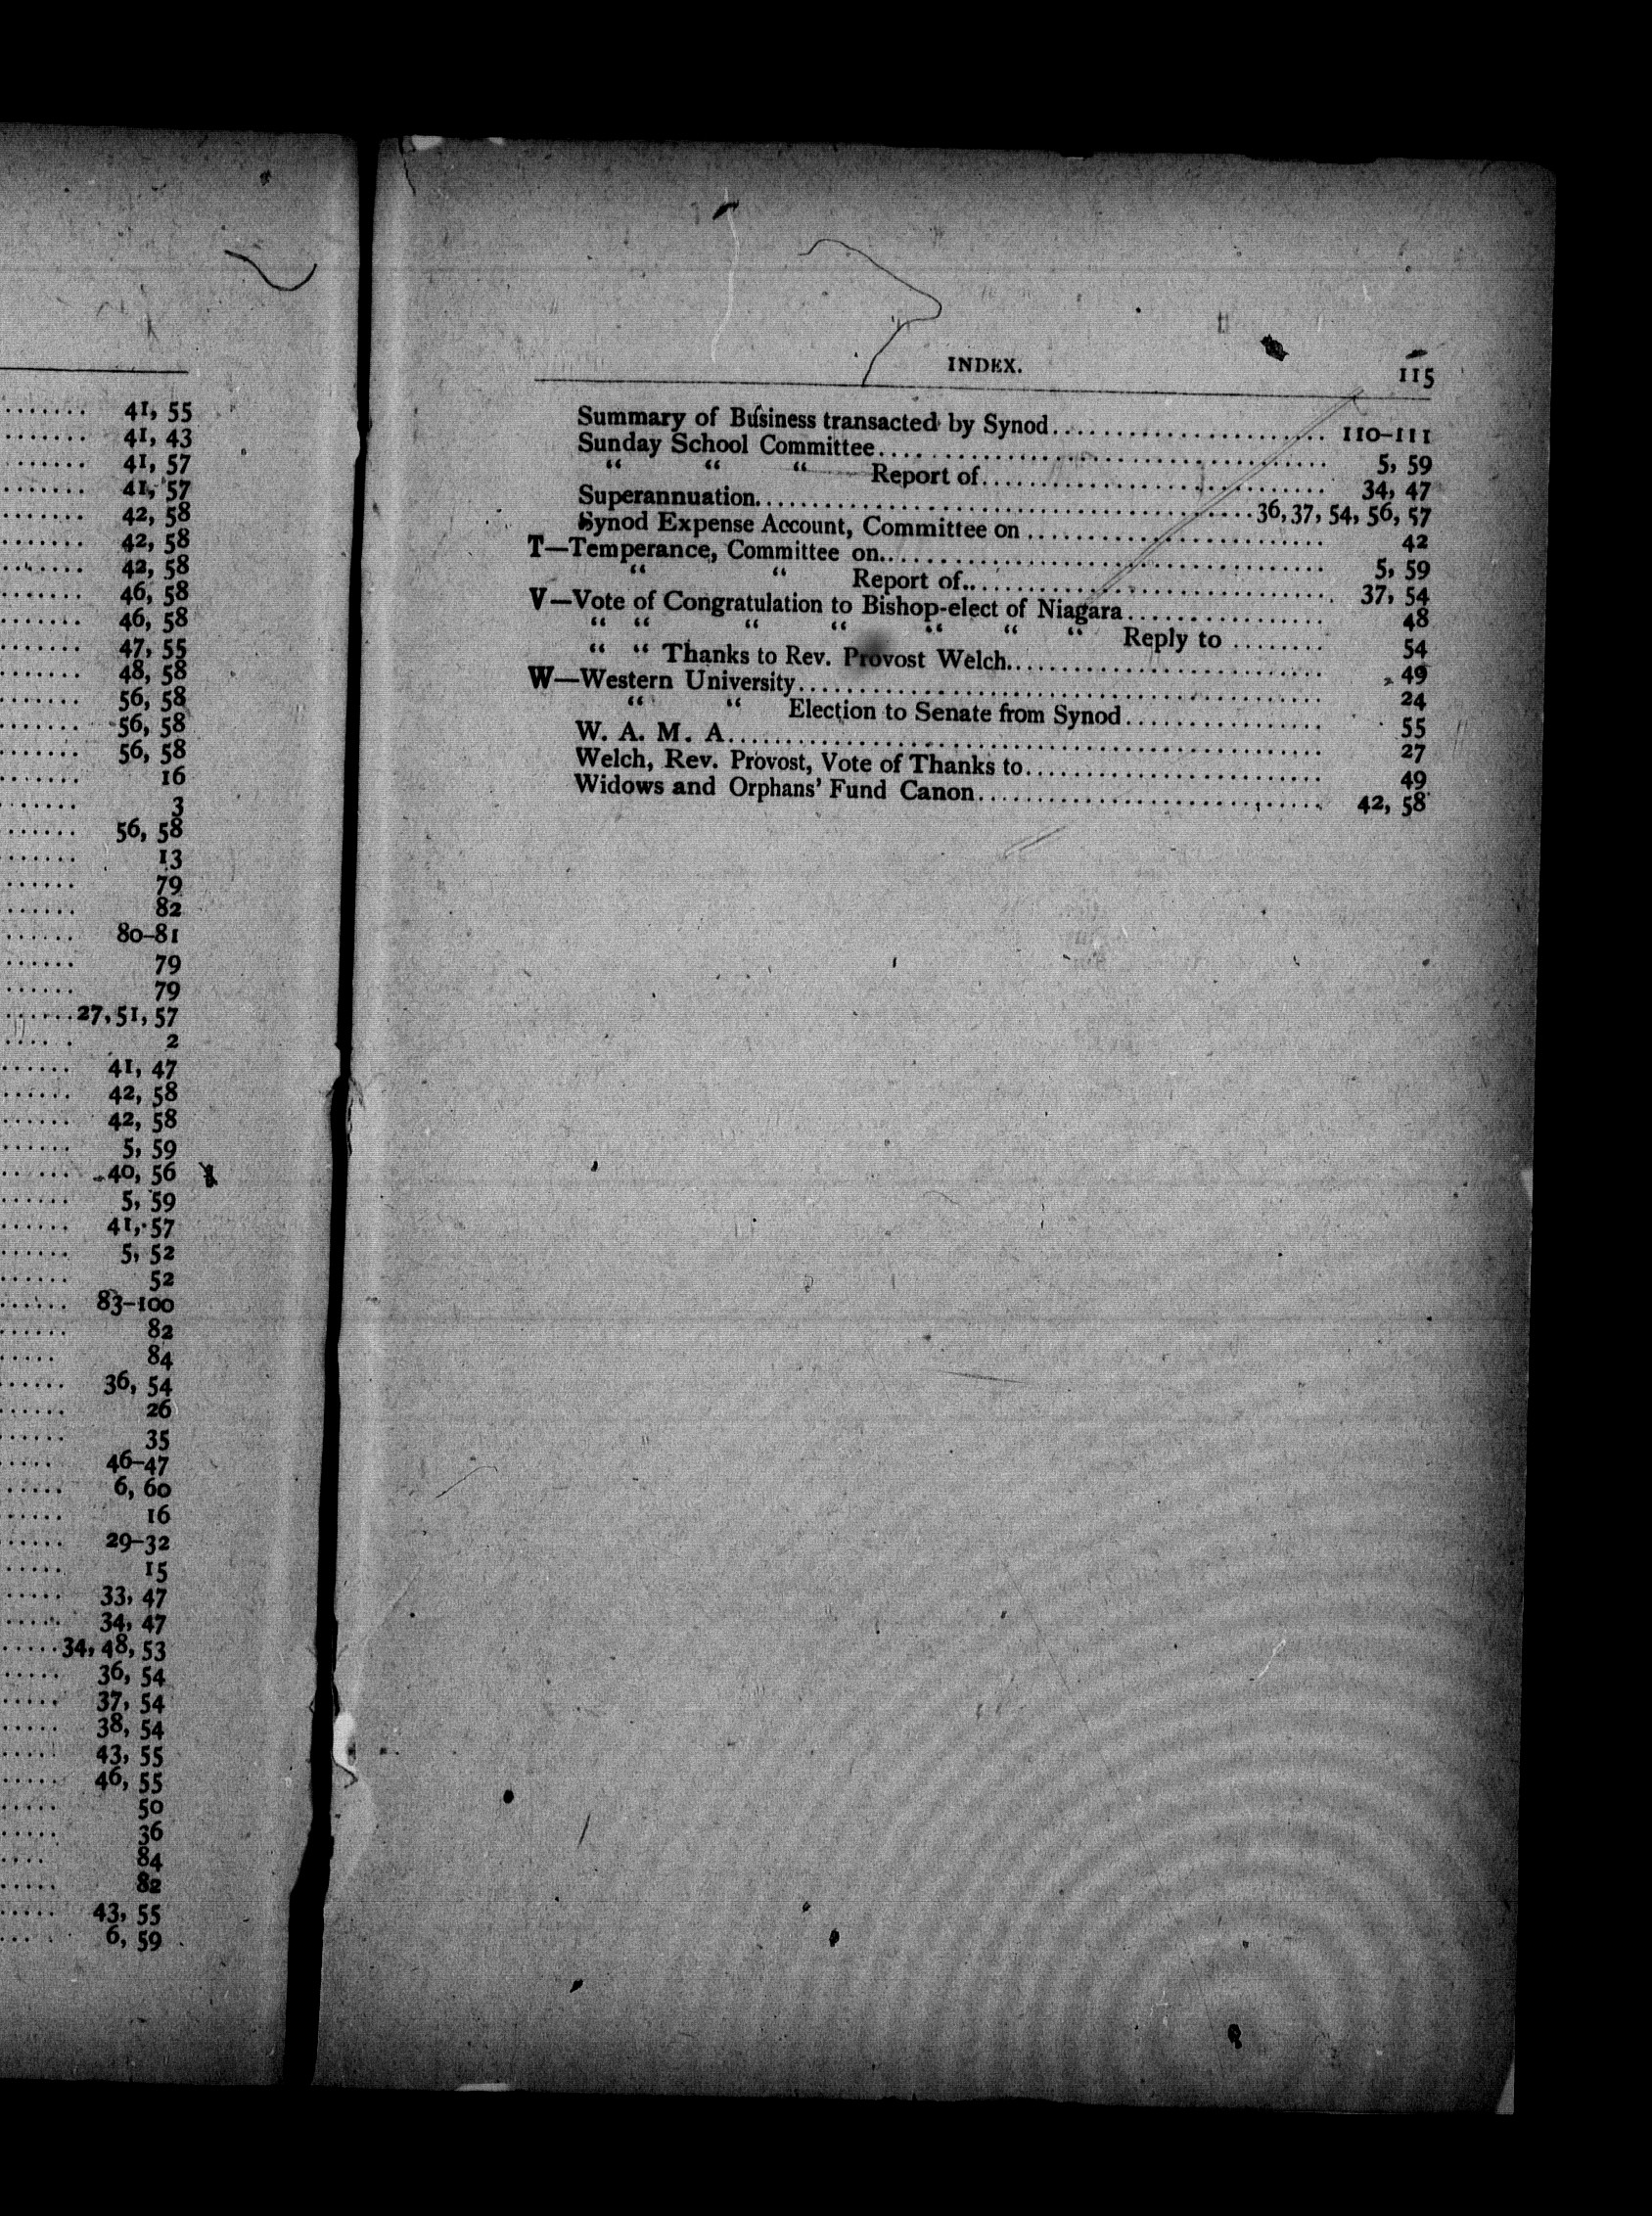 ....... 41, 55
....... 41, 43
....... 41, 57
....... 41, 57
....... 42, 58
....... 42, 58
....... 42, 58
....... 46, 58
....... 46, 58
....... 47, 55
....... 48, 58
....... 56, 58
....... 56, 58
....... 56, 58
....... 16
....... 3
....... 56, 58
....... 13
...... 79
...... 82
...... 80–81
...... 79
...... 79
......27, 51, 57
..... 2
...... 41, 47
...... 42, 58
...... 42, 58
...... 5, 59
...... 40, 56
...... 5, 59
...... 41, 57
...... 5, 52
...... 52
...... 83–100
...... 82
..... 84
...... 36, 54
...... 26
...... 35
..... 46–47
..... 6, 60
..... 16
...... 29–32
..... 15
..... 33, 47
..... 34, 47
.....34, 48, 53
..... 36, 54
..... 37, 54
..... 38, 54
..... 43, 55
..... 46, 55
..... 50
..... 36
.... 84
..... 82
..... 43, 55
.... 6, 59
INDEX. 115
Summary of Business transacted by Synod...................... 110–111
Sunday School Committee.................................... 5, 59
“ “ “ Report of............................ 34, 47
Superannuation........................................36, 37, 54, 56, 57
Synod Expense Account, Committee on ........................ 42
T—Temperance, Committee on.................................... 5, 59
“ “ Report of.............................. 37, 54
V—Vote of Congratulation to Bishop-elect of Niagara................ 48
“ “ “ “ “ “ “ Reply to ........ 54
“ “ Thanks to Rev. Provost Welch.......................... 49
W—Western University.......................................... 24
“ “ Election to Senate from Synod................ 55
W. A. M. A................................................ 27
Welch, Rev. Provost, Vote of Thanks to........................ 49
Widows and Orphans’ Fund Canon............................ 42, 58